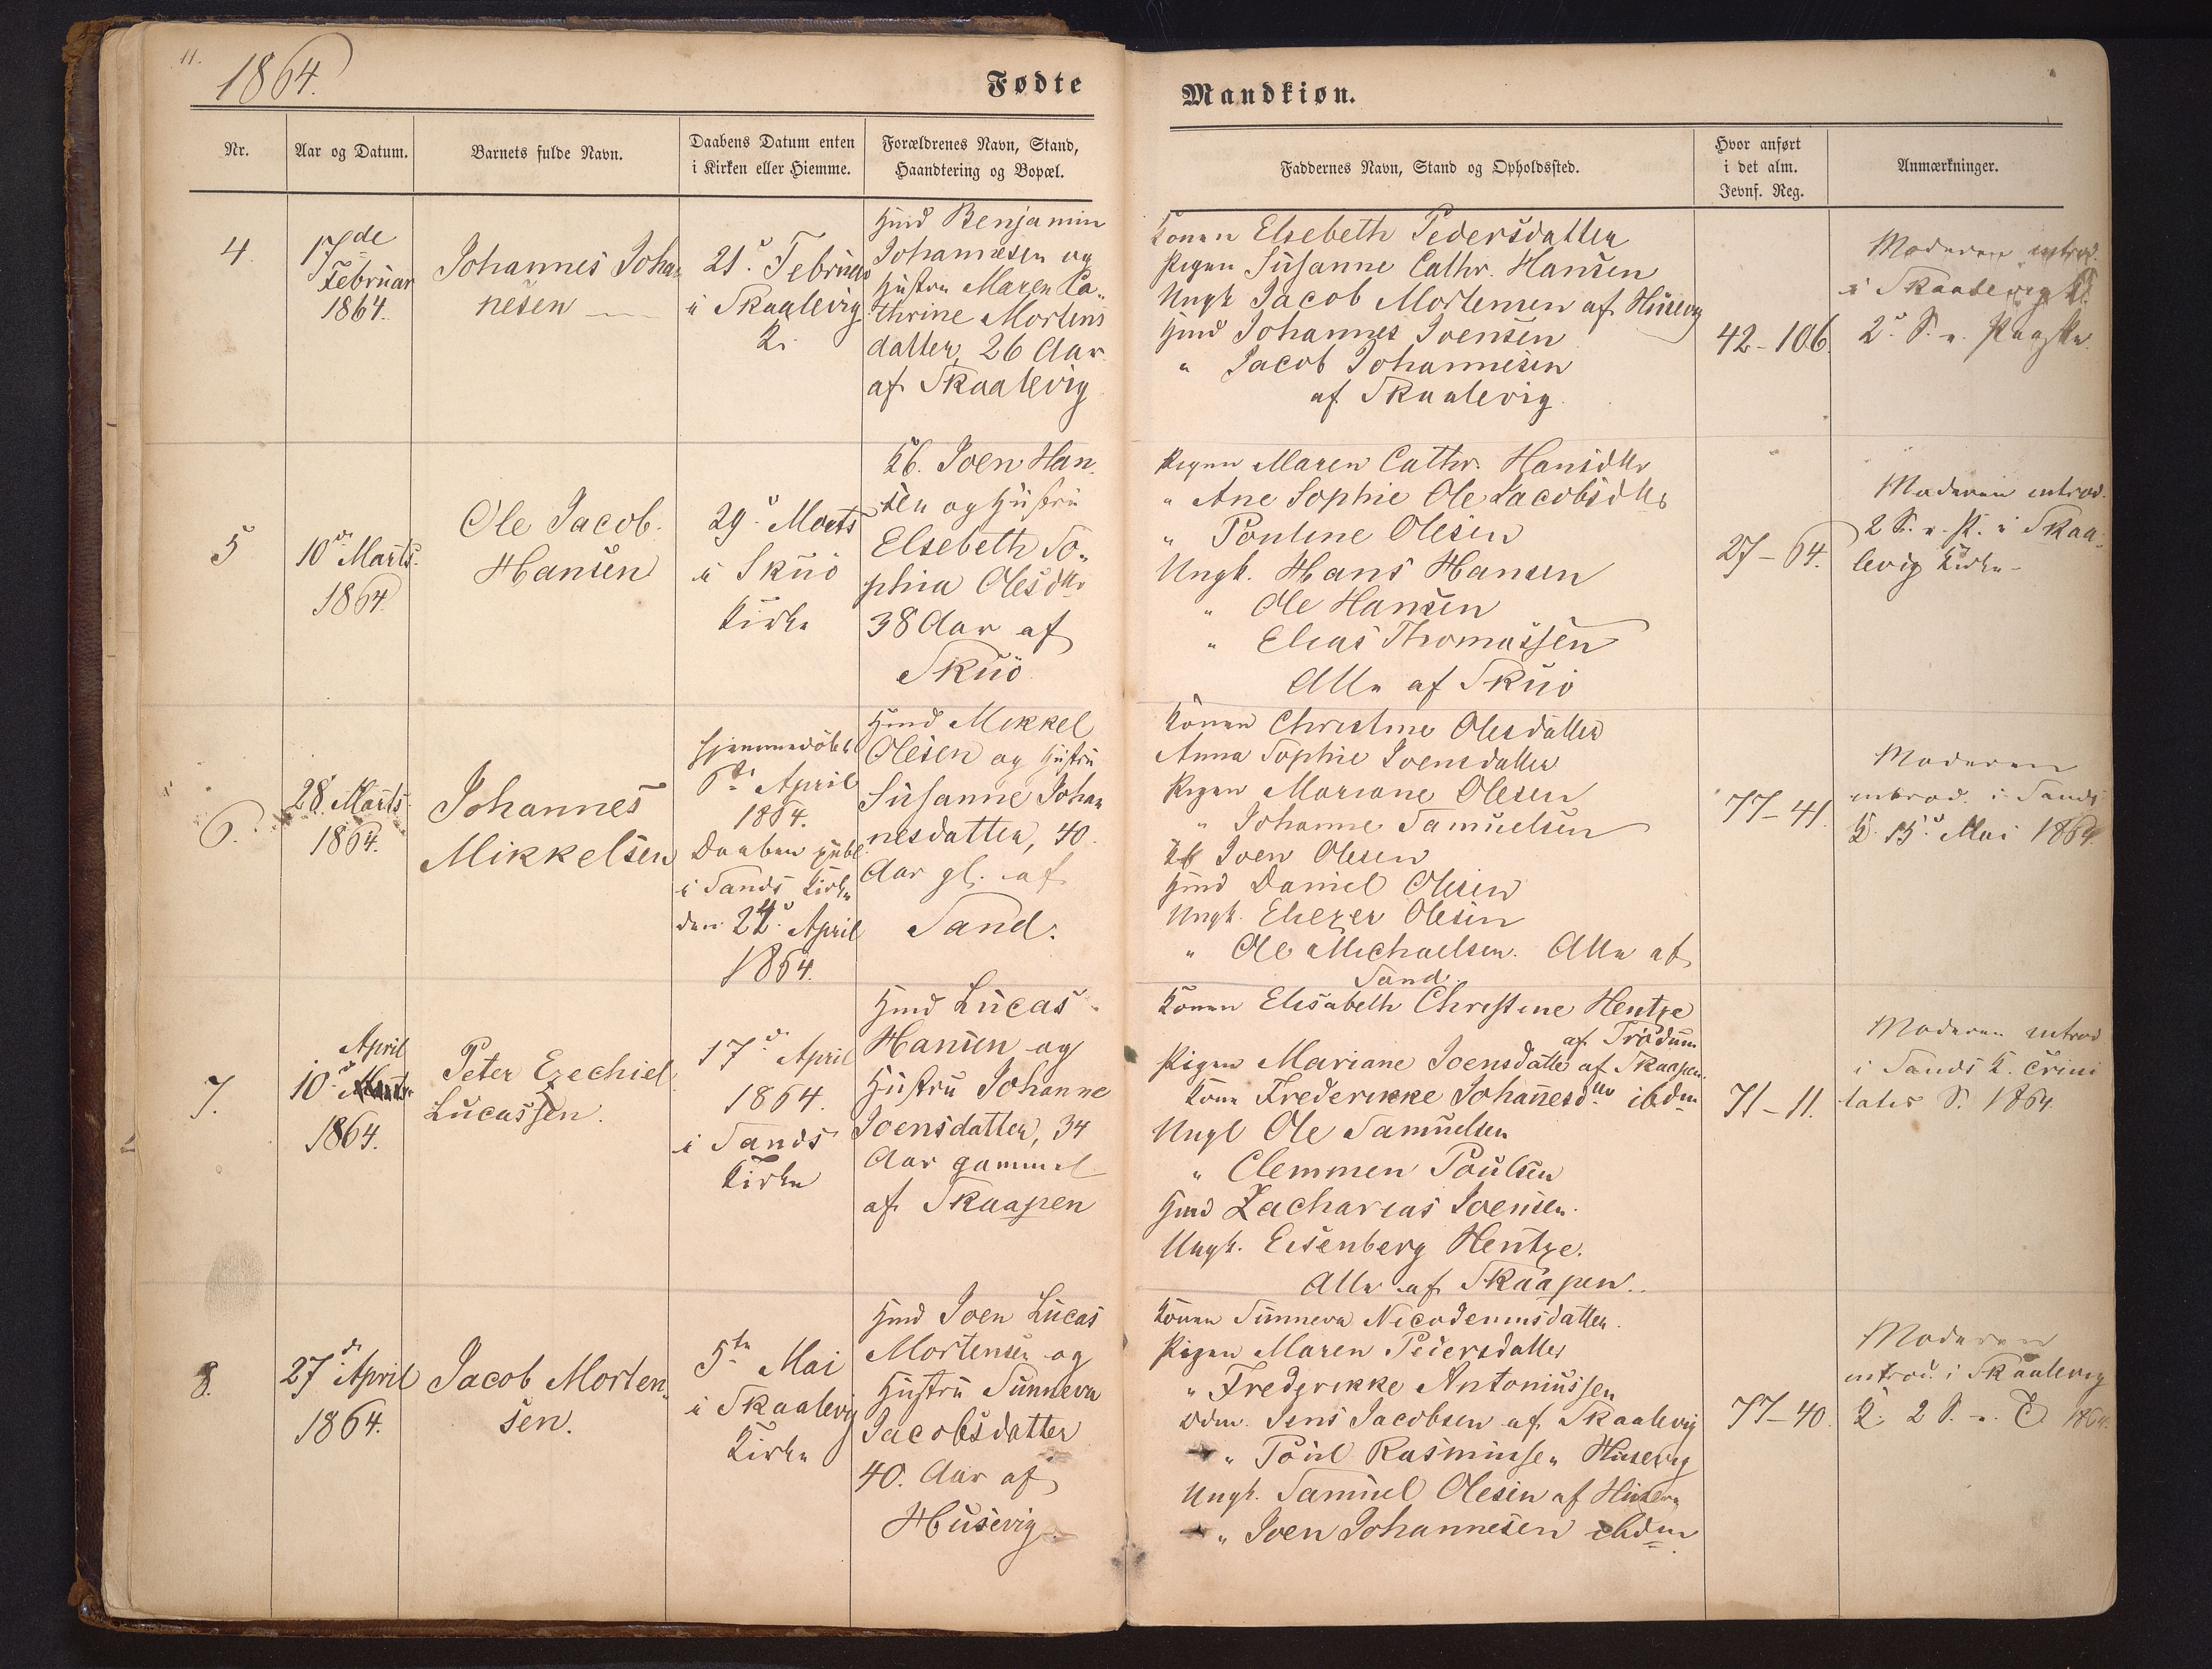 11.
1864.
Fødte
Mandkiøn.
Nr.
Aar og Datum.
Barnets fulde Navn.
Daabens Datum enten
i Kirken eller Hiemme.
Forældrenes Navn, Stand,
Haandtering og Bopæl.
Faddernes Navn, Stand og Opholdssted.
Hvor anført
i det alm.
Jevnf. Reg.
Anmærkninger.
4
17de
Februar
1864.
Johannes Joha-
nesen
21d. Februar
i Skaalevig
K.
Hmd Benjamin
Johannesen og
Hustru Maren Ca-
thrine Mortens
datter, 26 Aar
af Skaalevig
Konen Elsebeth Pedersdatter
Pigen Susanne Cathr. Hansen
Ungk Jacob Mortensen af Husevig
Hmd Johannes Joensen
" Jacob Johannesen
af Skaalevig
42-106.
Moderen introd.
i Skaalevig K.
2d. S. e. Paaske.
5
10d. Marts
1864.
Ole Jacob
Hansen
29d. Marts
i Skuö
Kirke
Kb. Joen Han-
sen og Hustru
Elsebeth So-
phia Olesdtr
38 Aar af
Skuö
Pigen Maren Cathr. Hansdtr
" Ane Sophie Ole Jacobsdtr
" Pouline Olesen
Ungk. Hans Hansen
" Ole Hansen
" Elias Thomassen
Alle af Skuö
27-64.
Moderen introd.
2 S. e. P. i Skaa-
levig Kirke
6.
28. Marts
1864.
Johannes
Mikkelsen
Hjemmedöbt
6te April
1864.
Daaben publ.
i Sands Kirke
den 24d. April
1864.
Hmd Mikkel
Olesen og Hustru
Susanne Johan
nesdatter, 40
Aar gl. af
Sand.
Konen Christine Olesdatter
Anna Sophie Joensdatter
Pigen Mariane Olesen
" Johanne Samuelsen
Kb Joen Olesen
Hmd Daniel Olesen
Ungk. Eliezer Olesen
" Ole Michaelsen. Alle af
Sand.
77-41.
Moderen
introd. i Sands
K. 15d Mai 1864.
7.
April
10d. Marts
1864.
Peter Ezechiel
Lucassen.
17d. April
1864.
i Sands
Kirke
Hmd Lucas
Hansen og
Hustru Johanne
Joensdatter, 34
Aar gammel
af Skaapen
Konen Elisabeth Christine Hentze
af Trödum
Pigen Mariane Joensdatter af Skaapen.
Kone Frederikke Johanesdtr ibdm
Ungk Ole Samuelsen
" Clemmen Poulsen
Hmd Zacharias Joensen.
Ungk. Eisenberg Hentze.
Alle af Skaapen.
71-11.
Moderen introd
i Sands K. Trini
tatis S. 1864.
8.
27d. April
1864.
Jacob Morten-
sen.
5te Mai
i Skaalevig
Kirke
Hmd Joen Lucas
Mortensen og
Hustru Sunneva
Jacobsdatter
40. Aar af
Husevig
Konen Sunneva Nicodemusdatter.
Pigen Maren Pedersdatter
" Frederikke Antoniussen
Jens Jacobsen af Skaalevig
" Poul Rasmussen Husevig
Ungk. Samuel Olesen af Husevig
" Joen Johannesen ibdm
77-40.
Moderen
introd. i Skaalevig
K. 2 S. e. T. 1864.